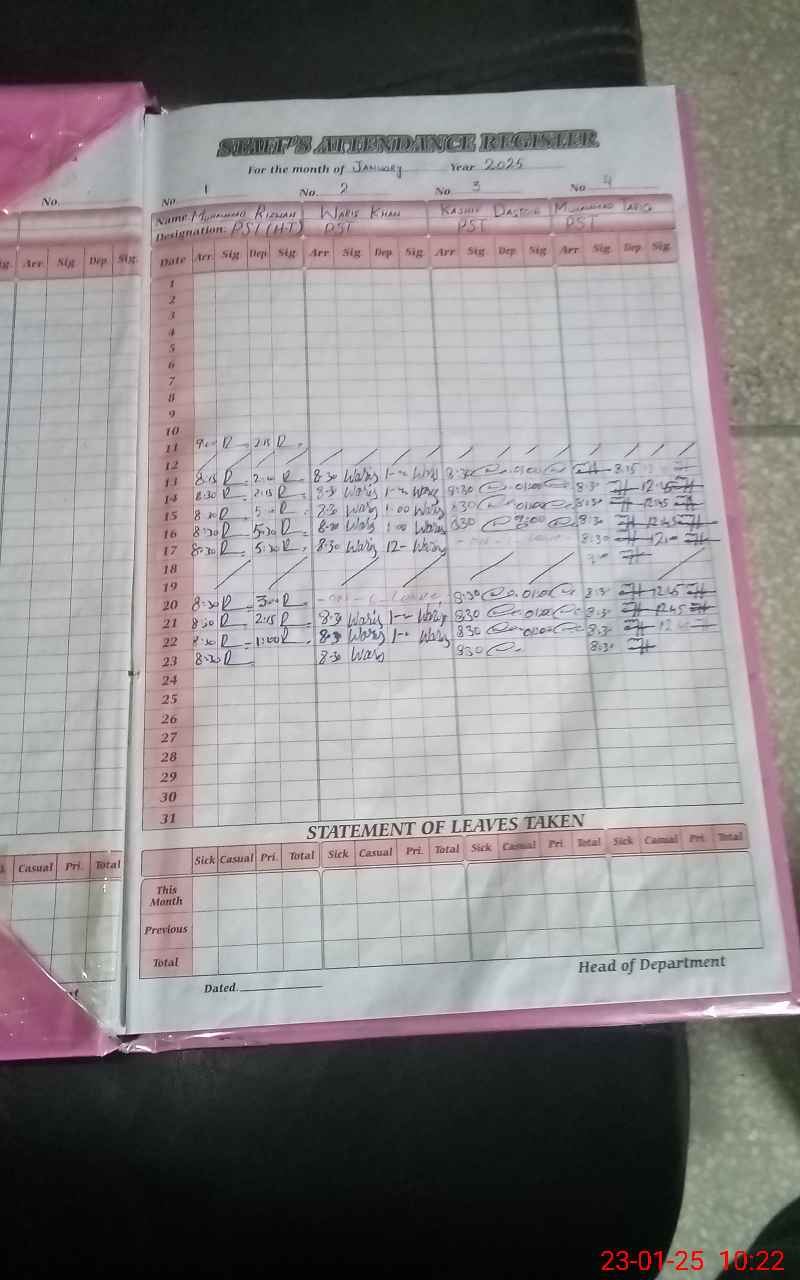 STAFF'S ATTENDANCE REGISTER
For the month of January Year 2025
No. No. 1 No. 2 No. 3 No 4
Name. Muhammad Rizwan Waris Khan Kashif Dastgir Muhammad Tariq
Designation. PST (H-T) PST PST PST
Sig. Arr. Sig Dep. Sig. Date Arr. Sig. Dep. Sig. Arr. Sig. Dep. Sig. Arr Sig. Dep. Sig. Arr. Sig. Dep. Sig.
1
2
3
4
5
6
7
8
9
10
11 9:00 R 2:15 R
12
13 8:15 R 2:00 R 8:30 Waris 1- Waris 8:30 01:00 8:15
14 8:30 R 2:15 R 8:30 Waris 1- Waris 8:30 01:00 8:30 12:45
15 8:30 R R 8:30 Waris 1:00 Waris 8:30 01:00 8:30 12:45
16 8:30 R 5:30 R 8:30 Waris 1:00 Waris 8:30 8:30 12:45
17 8:30 R 5:30 R 8:30 Waris 12- Waris 8:30
18
19
20 8:30 R 3:00 R - on - C - Leave 8:30 01:00 8:30 12:45
21 8:30 R 2:15 R 8:30 Waris 1- Waris 8:30 01:00 8:30 12:45
22 8:30 R 1:00 R 8:30 Waris 1- Waris 8:30 01:00 8:30
23 8:30 R 8:30 Waris 8:30 8:30
24
25
26
27
28
29
30
31
STATEMENT OF LEAVES TAKEN
Casual Pri. Total Sick Casual Pri. Total Sick Casual Pri. Total Sick Casual Pri. Total Sick Casual Pri. Total
This Month
Previous
Total
Dated. Head of Department
23-01-25 10:22